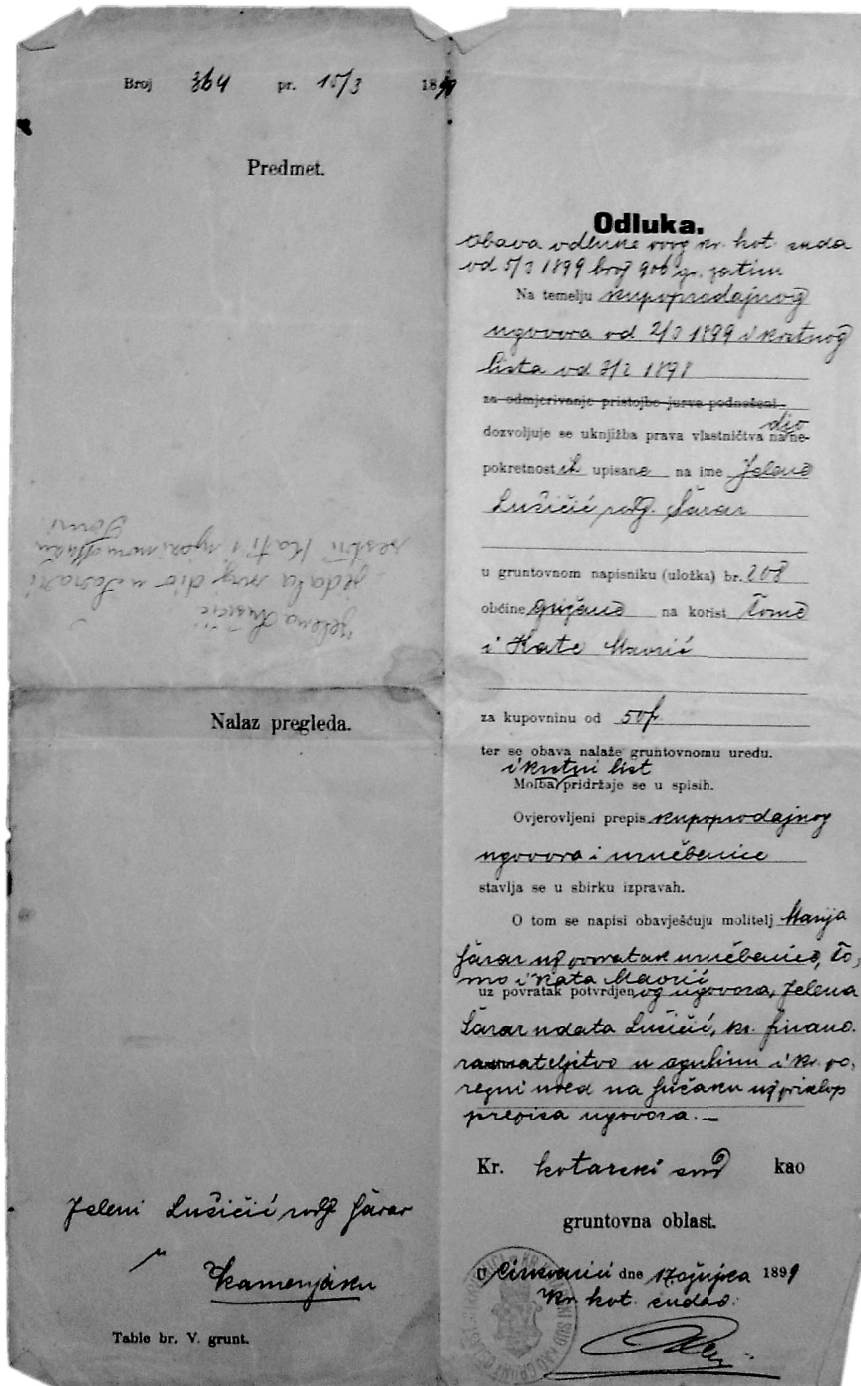 Broj 364 pr. 15/3 1899
Predmet.
Jelena Lušičić
sestri Kati i
Nalaz pregleda.
Jeleni Lušičić rodj. Šarar
u
Kamenjaku
Table br. V. grunt.
Odluka.
obava odluke ovog kr. kot. suda
od 5/3 1899 broj 906 gr. zatim
Na temelju kupoprodajnog
ugovora od 2/3 1899 i krstnog
lista od 1898
za odmjerivanje pristojbe jurve podnešeni
dozvoljuje se uknjižba prava vlastničtva na dio ne-
pokretnostih upisane na ime Jelene
Lušičić rodj. Šarar
u gruntovnom napisniku (uložka) br. 208
obćine Grižane na korist Tome
i Kate Mavrić
za kupovninu od 50 f.
ter se obava nalaže gruntovnomu uredu.
i krstni list
Molba pridržaje se u spisih.
Ovjerovljeni prepis kupoprodajnog
ugovora i uručbenice
stavlja se u sbirku izpravah.
O tom se napisi obavješćuju molitelj Marija
Šarar uz povratak uručbenice, To-
mo i Kata Mavrić
uz povratak potvrdjenog ugovora, Jelena
Šarar udata Lušičić, kr. financ.
ravnateljstvo u Ogulinu i kr. po-
rezni ured na Sušaku uz priklop
prepisa ugovora. —
Kr. kotarski sud kao
gruntovna oblast.
U Cirkvenici dne 17 ožujka 1899
Kr. kot. sudac: